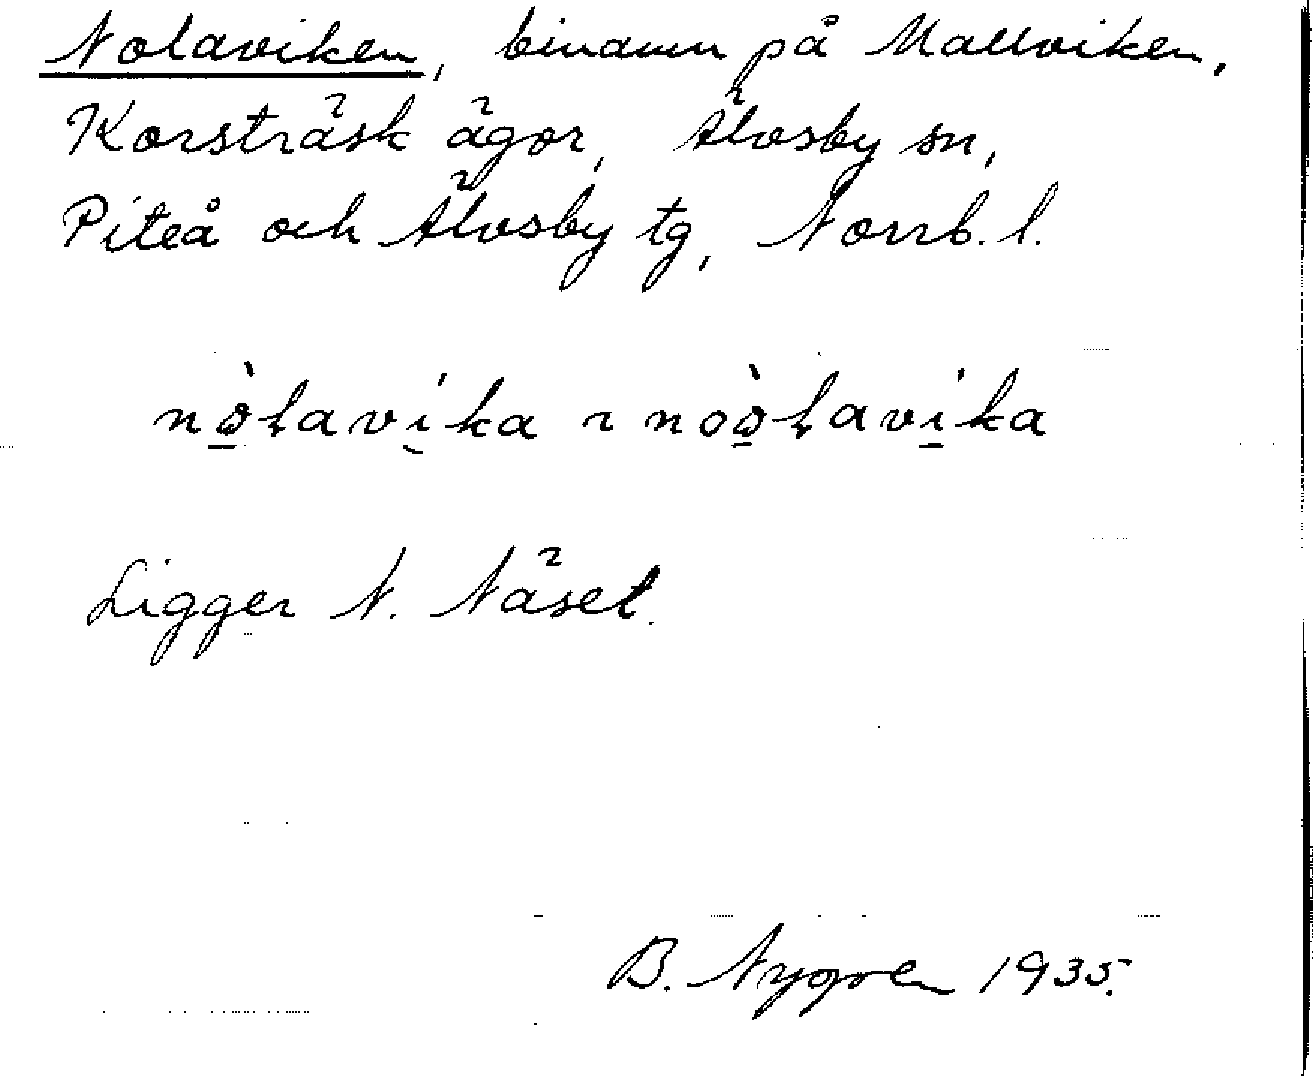 Nolaviken, binamn på Mallviken,
Korsträsk ägor, Älvsby sn,
Piteå och Älvsby tg, Norrb. l.
nò̱ḷaví̱ka ~ noò̱ḷaví̱ka
Ligger N. Näset.
B. Nygren 1935.